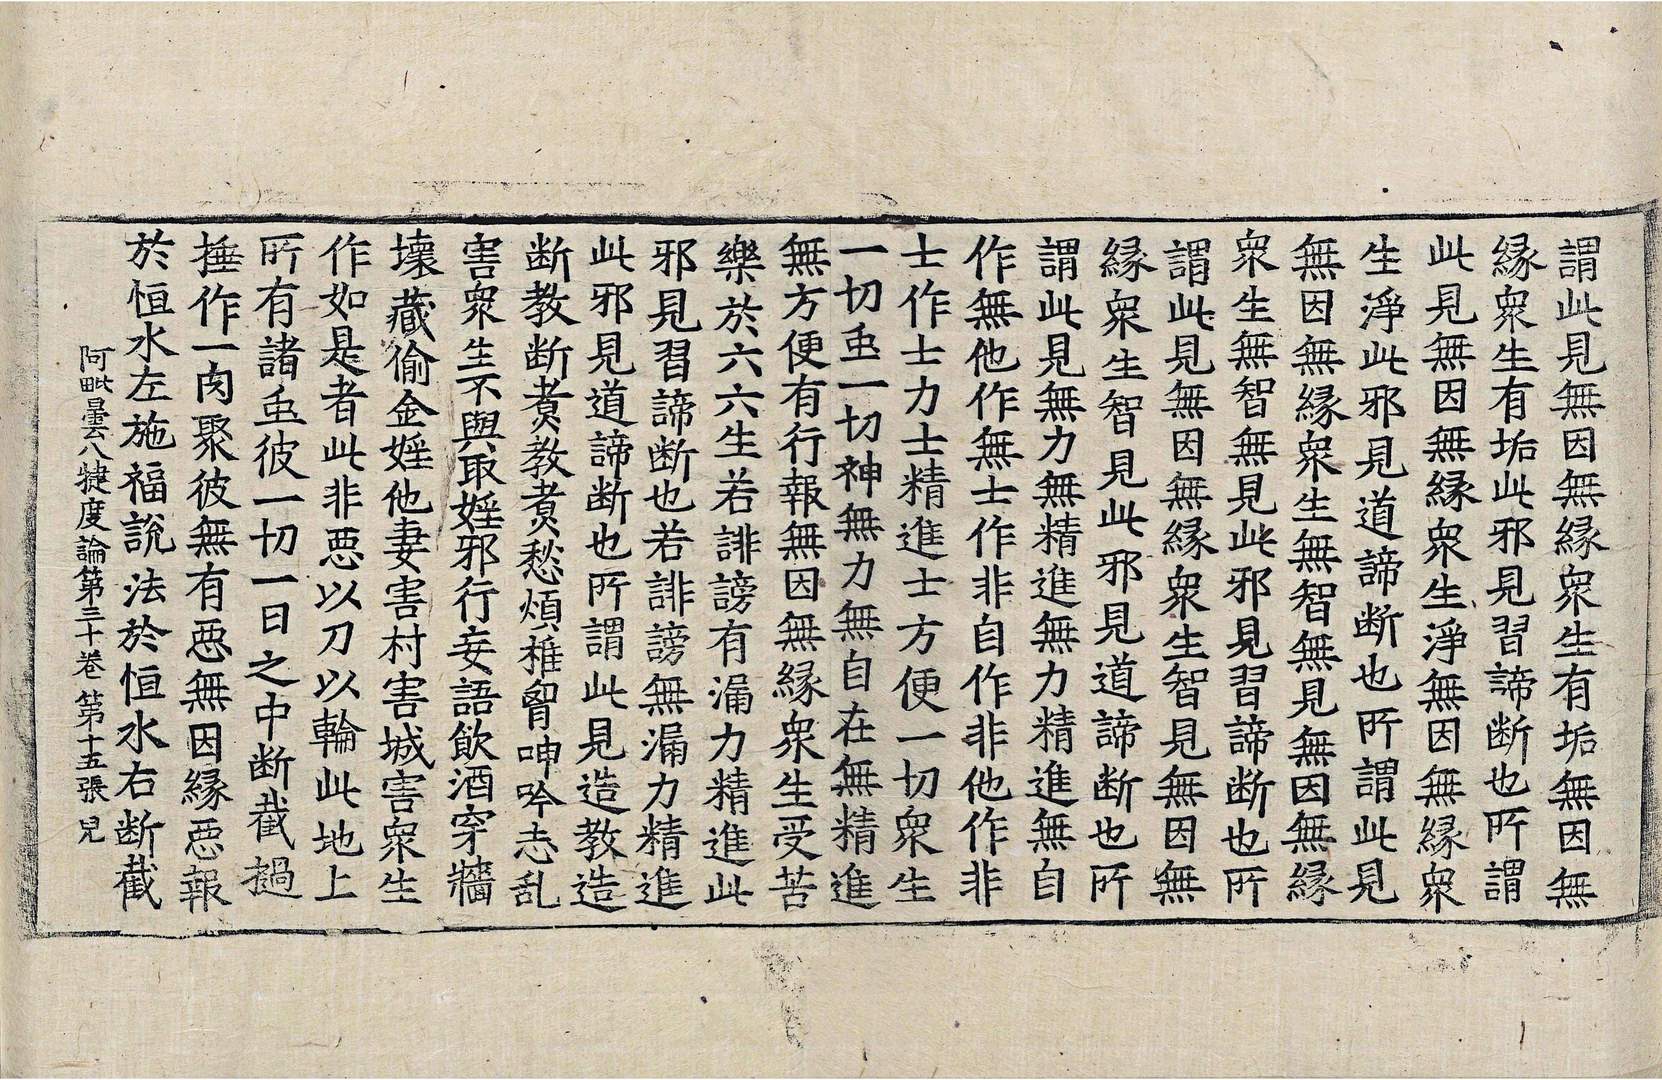 謂此見無因無緣衆生有垢無因無
緣衆生有垢此邪見習諦断也所謂
此見無因無緣衆生淨無因無緣衆
生淨此邪見道諦断也所謂此見
無因無緣衆生無智無見無因無緣
衆生無智無見此邪見習諦断也所
謂此見無因無緣衆生智見無因無
緣衆生智見此邪見道諦断也所
謂此見無力無精進無力精進無自
作無他作無士作非自作非他作非
士作士力士精進士方便一切衆生
一切䖝一切神無力無自在無精進
無方便有行報無因無緣衆生受苦
樂於六六生若誹謗有漏力精進此
邪見習諦断也若誹謗無漏力精進
此邪見道諦断也所謂此見造教造
断教断煑教煑愁煩椎胷呻吟恚乱
害衆生不與取婬邪行妄語飲酒穿牆
壞藏偷金婬他妻害村害城害衆生
作如是者此非惡以刀以輪此地上
所有諸䖝彼一切一日之中断截撾
捶作一肉聚彼無有惡無因緣惡報
於恒水左施福說法於恒水右断截
阿毗曇八犍度論第三十卷 第十五張 兒